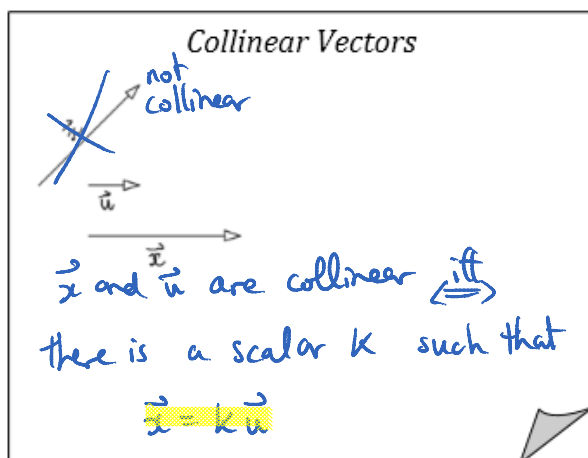 Collinear Vectors
not
collinear
u⃗
x⃗
x⃗ and u⃗ are collinear iff
there is a scalar k such that
x⃗ = k u⃗